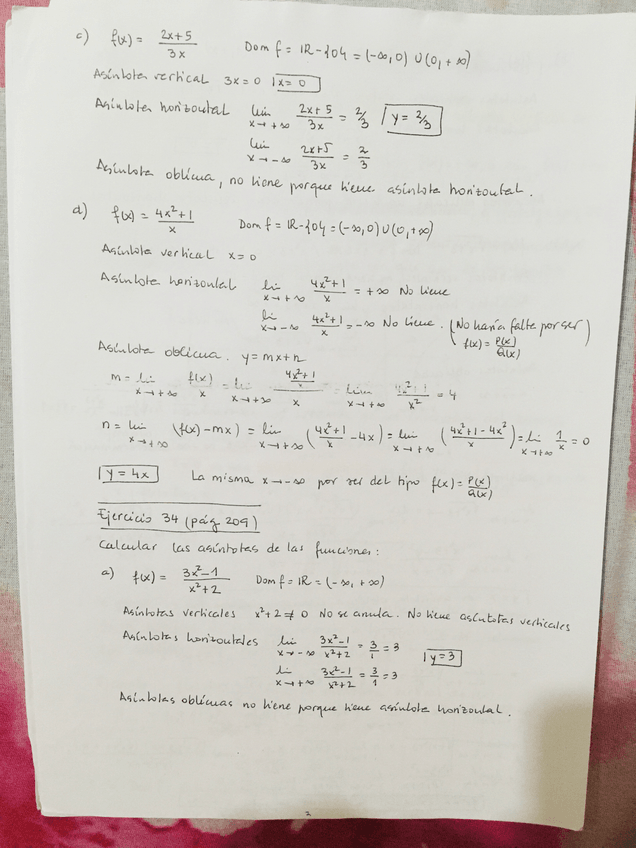 c) f(x) = 2x+5 / 3x   Dom f = IR - {0} = (-∞, 0) ∪ (0, +∞)
Asíntota vertical 3x = 0 | x = 0
Asíntota horizontal lim x→+∞ 2x+5 / 3x = 2/3 | y = 2/3
lim x→-∞ 2x+5 / 3x = 2/3
Asíntota oblicua, no tiene porque tiene asíntota horizontal.
d) f(x) = 4x²+1 / x   Dom f = IR - {0} = (-∞, 0) ∪ (0, +∞)
Asíntota vertical x = 0
Asíntota horizontal lim x→+∞ 4x²+1 / x = +∞ No tiene
lim x→-∞ 4x²+1 / x = -∞ No tiene. (No haría falta por ser f(x) = P(x)/Q(x))
Asíntota oblicua. y = mx+n
m = lim x→+∞ f(x)/x = lim x→+∞ (4x²+1 / x) / x = lim x→+∞ 4x²+1 / x² = 4
n = lim x→+∞ (f(x) - mx) = lim x→+∞ (4x²+1 / x - 4x) = lim x→+∞ (4x²+1-4x² / x) = lim x→+∞ 1/x = 0
| y = 4x   La misma x→-∞ por ser del tipo f(x) = P(x)/Q(x)
Ejercicio 34 (pág 209)
Calcular las asíntotas de las funciones:
a) f(x) = 3x²-1 / x²+2   Dom f = IR = (-∞, +∞)
Asíntotas verticales x²+2 ≠ 0 No se anula. No tiene asíntotas verticales
Asíntotas horizontales lim x→-∞ 3x²-1 / x²+2 = 3/1 = 3 | y = 3
lim x→+∞ 3x²-1 / x²+2 = 3/1 = 3
Asíntotas oblicuas no tiene porque tiene asíntota horizontal.
2